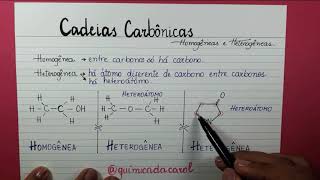 Cadeias Carbônicas
Homogêneas e Heterogêneas
Homogênea → entre carbonos só há carbono.
Heterogênea → há átomo diferente de carbono entre carbonos
há heteroátomo.
HETEROÁTOMO
H H
H-C-C-OH
H H
H H
H-C-O-C-H
H H
O
HETEROÁTOMO
HOMOGÊNEA
HETEROGÊNEA
HETEROGÊNEA
@quimicadacarol